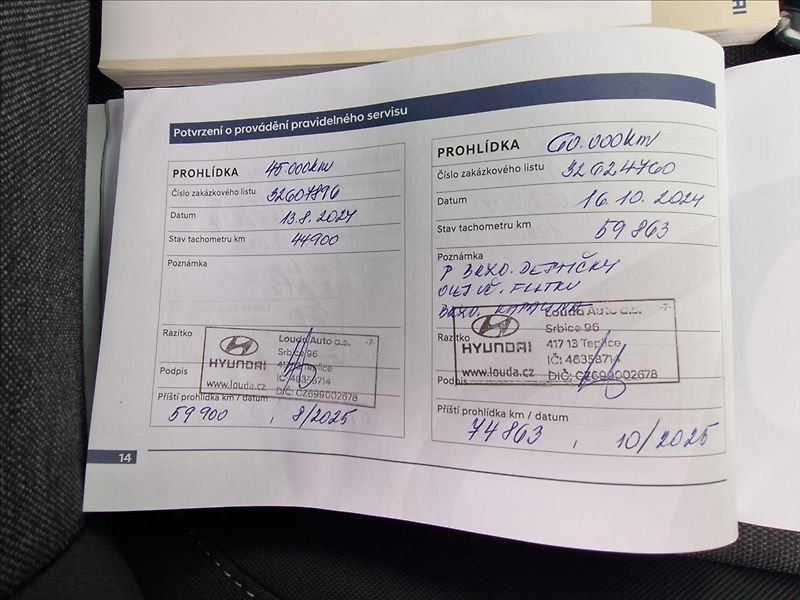 Potvrzení o provádění pravidelného servisu
PROHLÍDKA 45 000km
Číslo zakázkového listu 32607896
Datum 13.8.2024
Stav tachometru km 44900
Poznámka
Razítko
HYUNDAI
www.louda.cz
Louda Auto a.s. -7-
Srbice 96
417 13 Teplice
IČ: 46358714
DIČ: CZ699002678
Podpis
Příští prohlídka km / datum
59 900 , 8/2025
PROHLÍDKA 60.000km
Číslo zakázkového listu 32624760
Datum 16.10.2024
Stav tachometru km 59 863
Poznámka
P BRZD. DESTIČKY
OLEJ VČ. FILTRU
BRZD. KAPALINA
Razítko
HYUNDAI
www.louda.cz
Louda Auto a.s. -7-
Srbice 96
417 13 Teplice
IČ: 46358714
DIČ: CZ699002678
Podpis
Příští prohlídka km / datum
74 863 , 10/2025
14